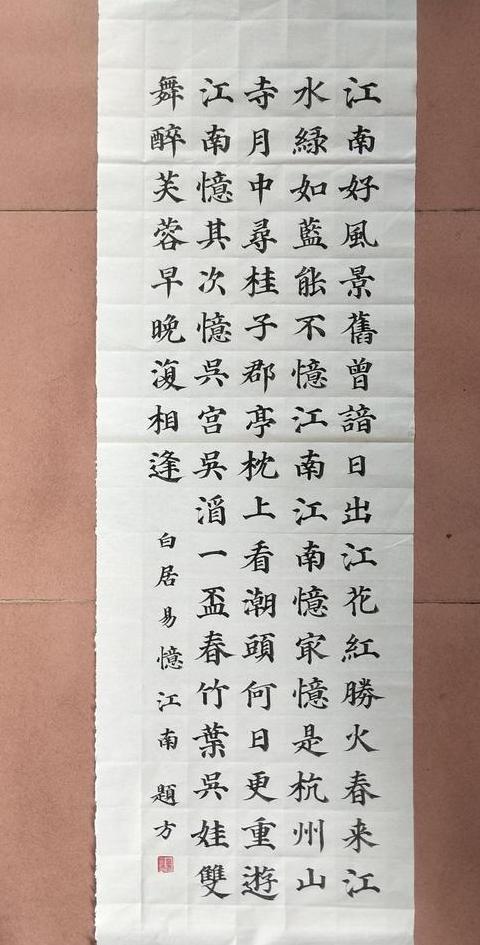 江南好風景舊曾諳日出江花紅勝火春来江
水綠如藍能不憶江南江南憶冣憶是杭州山
寺月中尋桂子郡亭枕上看潮頭何日更重遊
江南憶其次憶吳宮吳酒一盃春竹葉吳娃雙
舞醉芙蓉早晚復相逢
白居易憶江南 題方